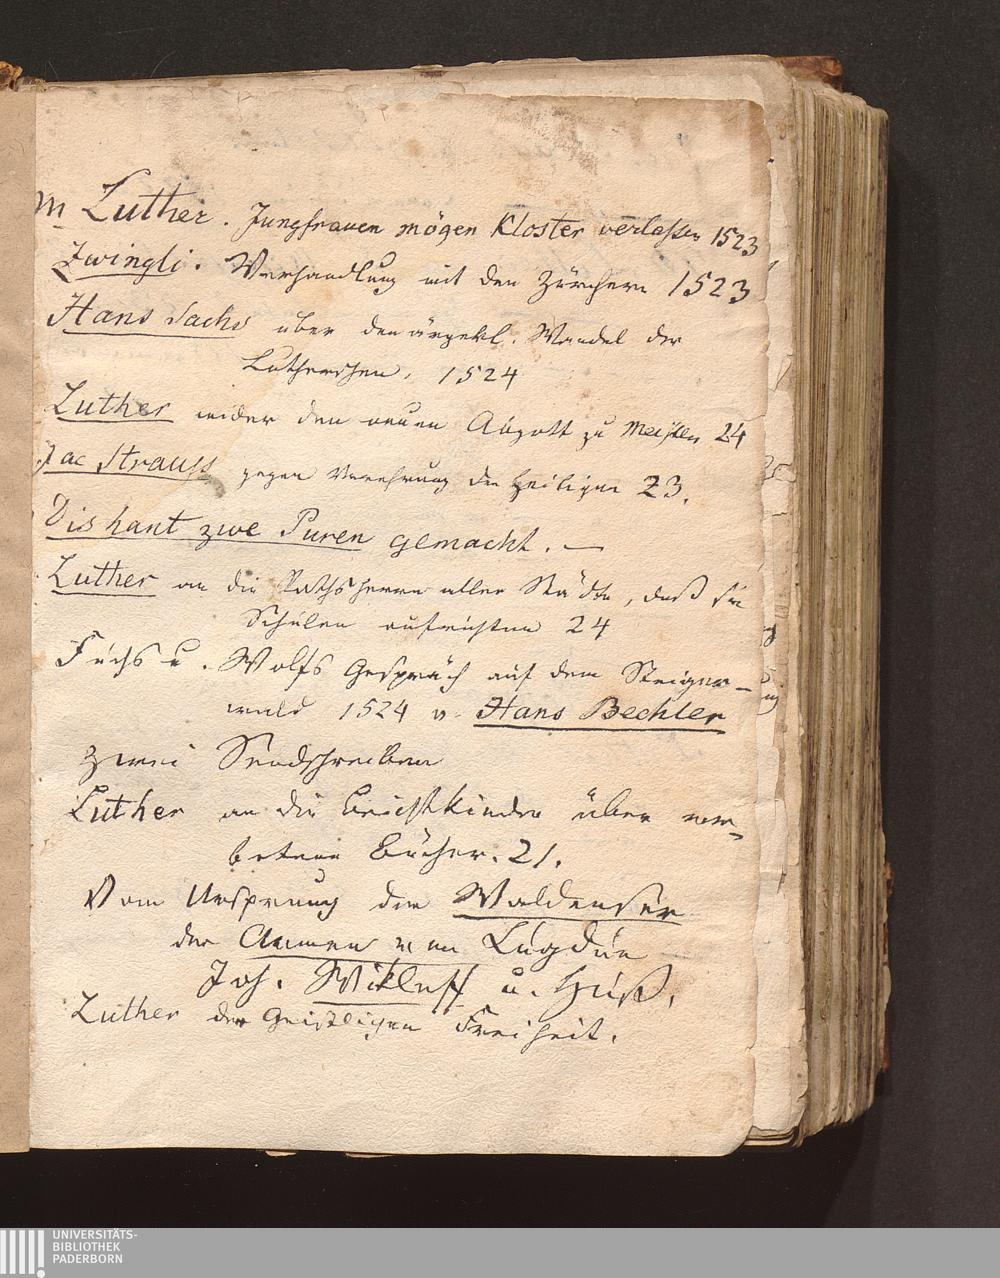 M Luther. Jungfrauen mögen Kloster verlassen 1523
Zwingli. Verhandlung mit den Zürchern 1523
Hans Sachs über den ärgerl. Wandel der
Lutherschen. 1524
Luther wider den neuen Abgott zu Meissen 24
Jac Strauss gegen Verehrung der Heiligen 23.
Dis hant zwe Puren gemacht. —
Luther an die Rathsherrn aller Städte, daß sie
Schulen aufrichten 24
Fuchs u. Wolfs Gespräch auf dem Steiger-
wald 1524 v. Hans Bechler
Zwei Sendschreiben
Luther an die Beichtkinder über ver-
botene Bücher. 21.
Vom Ursprung der Waldenser
der Armen von Lugdun
Joh. Wikleff u. Huß.
Luther der Geistlichen Freiheit.
UNIVERSITÄTS-
BIBLIOTHEK
PADERBORN